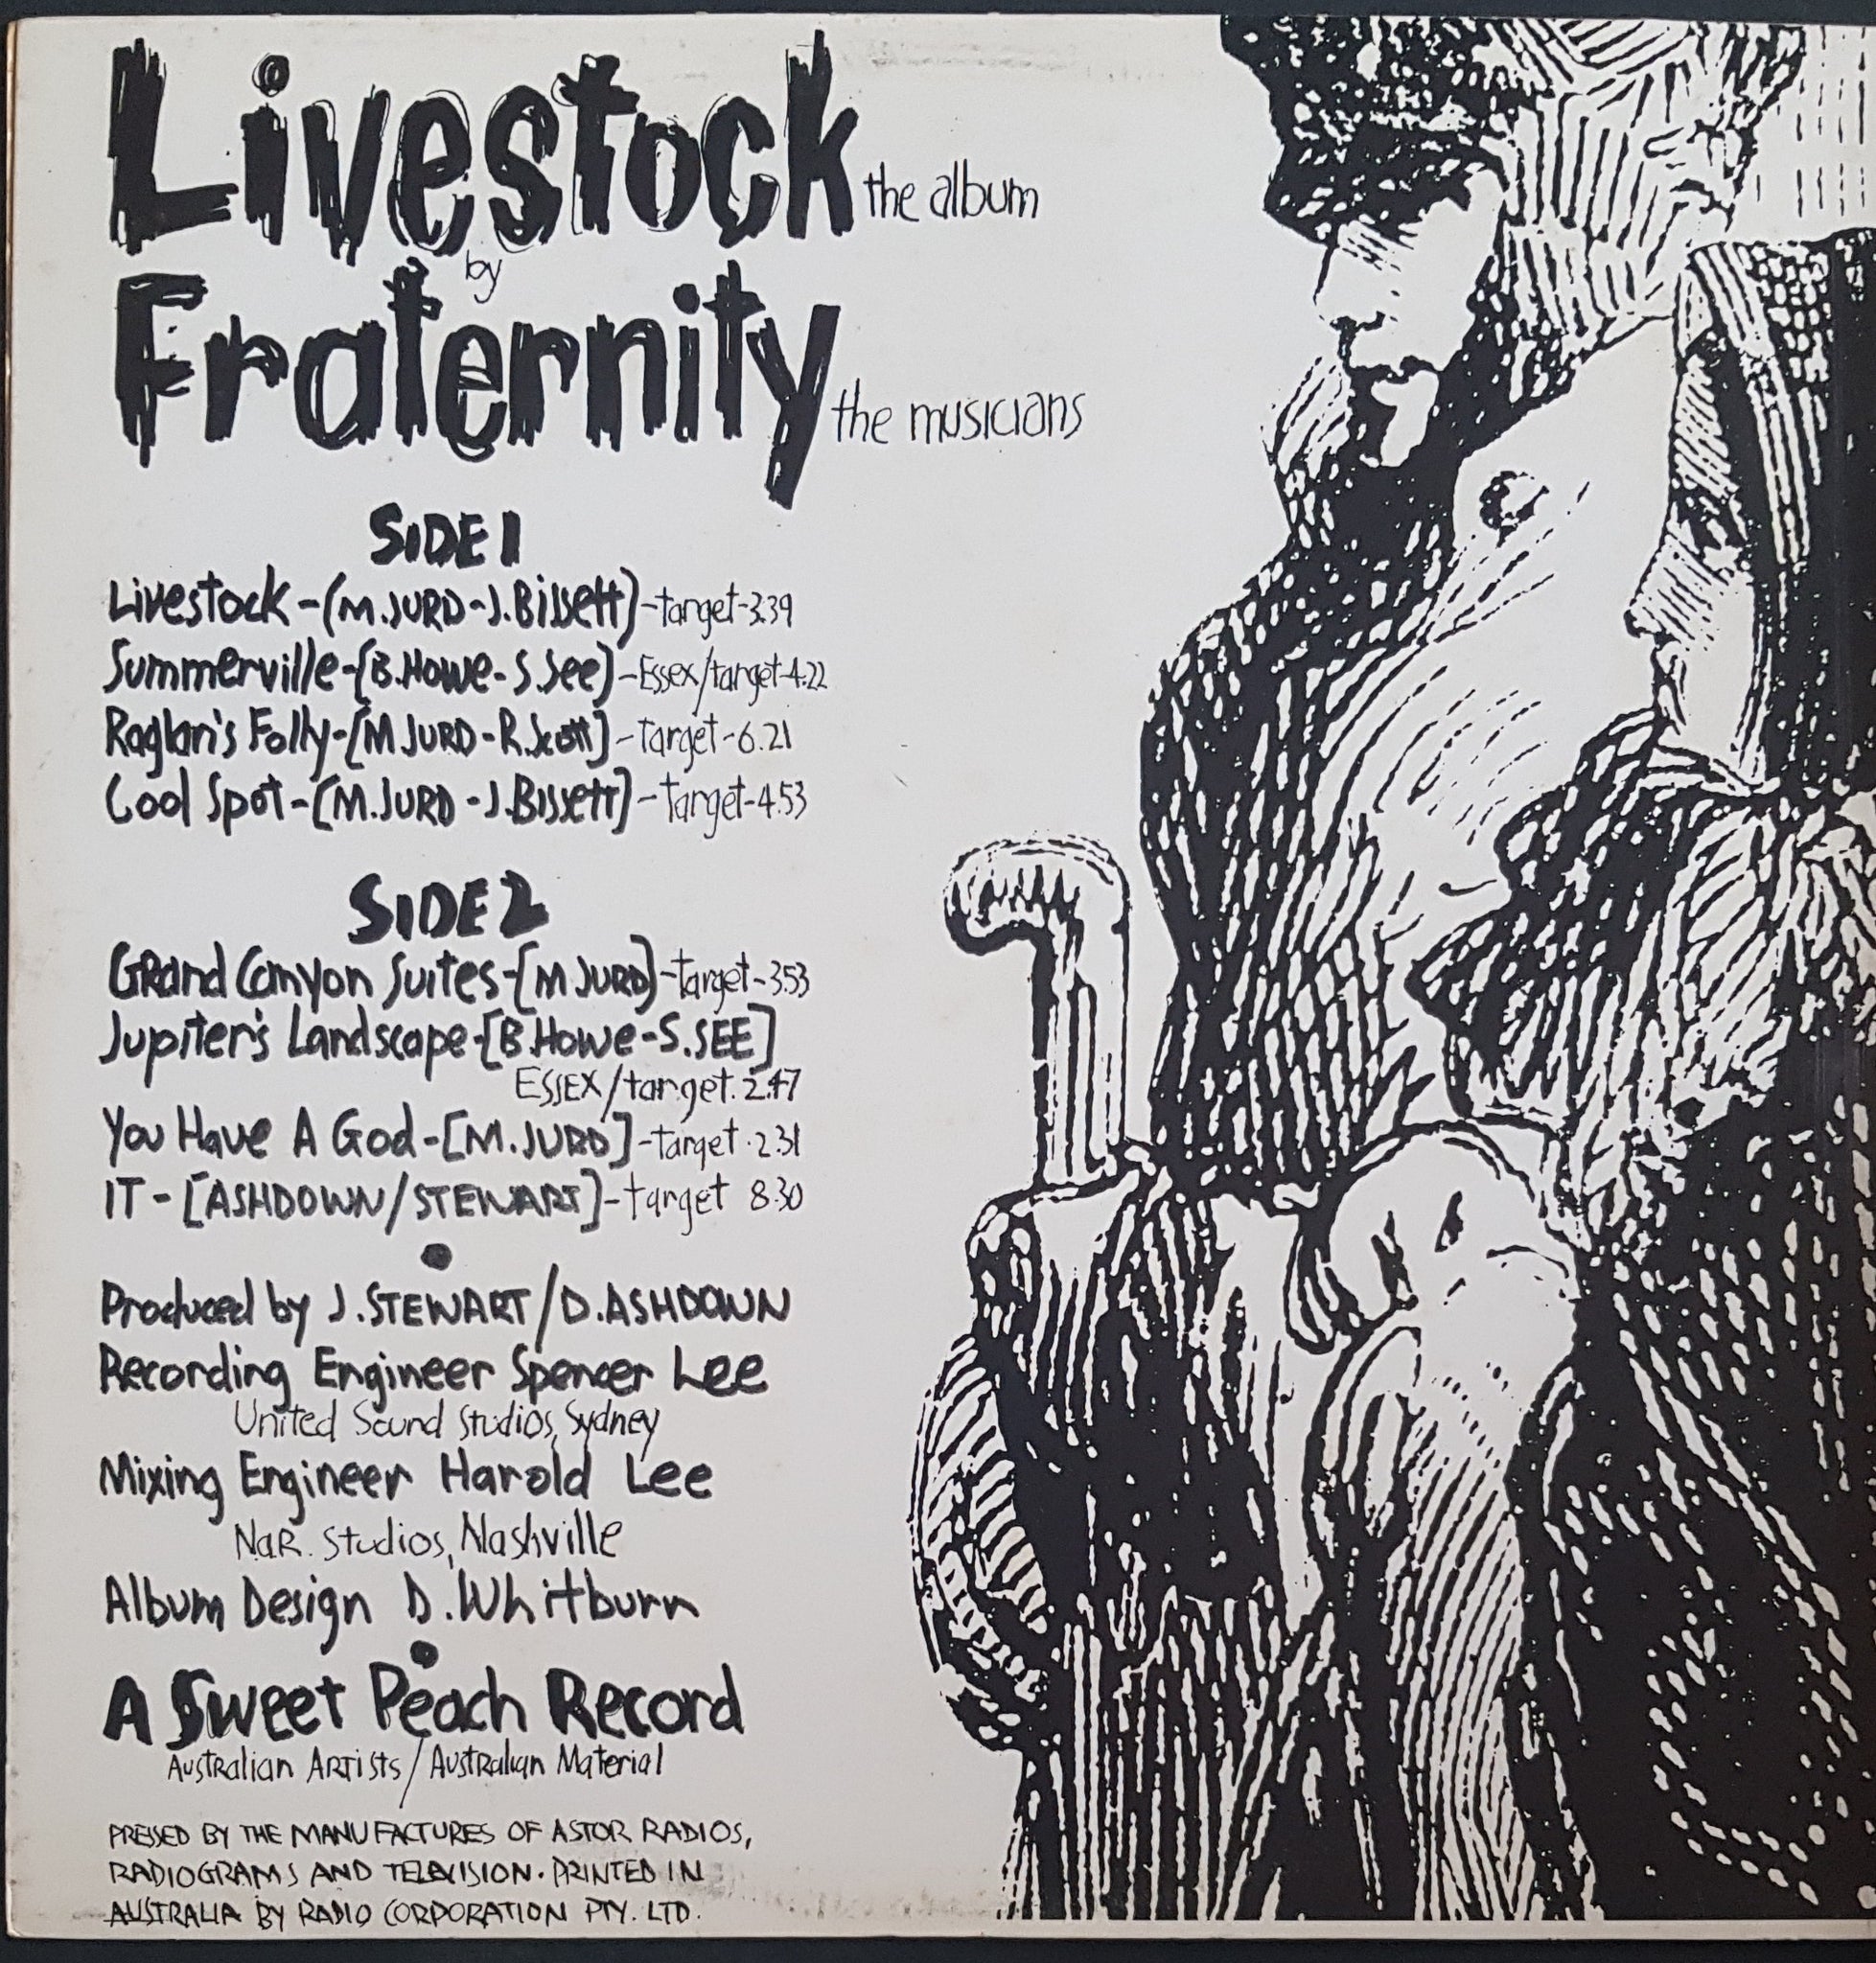 Livestock the album
by
Fraternity the musicians
SIDE 1
Livestock-(M.JURD-J.Bissett)-target-3.39
Summerville-[B.Howe-S.See]-Essex/target-4.22
Raglan's Folly-[M JURD-R.Scott]-Target-6.21
Cool Spot-[M.JURD-J.Bissett]-Target-4.53
SIDE 2
GRand Canyon Suites-[M JURD]-target-3.53
Jupiter's Landscape-[B.Howe-S.SEE]
ESSEX/target. 2.47
You Have A God-[M.JURD]-target.2.31
IT-[ASHDOWN/STEWART]-target 8.30
Produced by J.STEWART/D.ASHDOWN
Recording Engineer Spencer Lee
United Sound Studios, Sydney
Mixing Engineer Harold Lee
NaR. Studios, Nashville
Album Design D.Whitburn
A Sweet Peach Record
Australian Artists/Australian Material
PRESSED BY THE MANUFACTURES OF ASTOR RADIOS,
RADIOGRAMS AND TELEVISION. PRINTED IN
AUSTRALIA BY RADIO CORPORATION PTY. LTD.